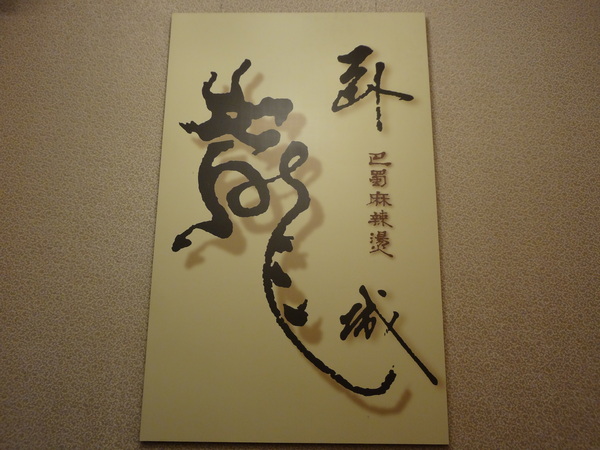 臥龍城
巴蜀麻辣燙